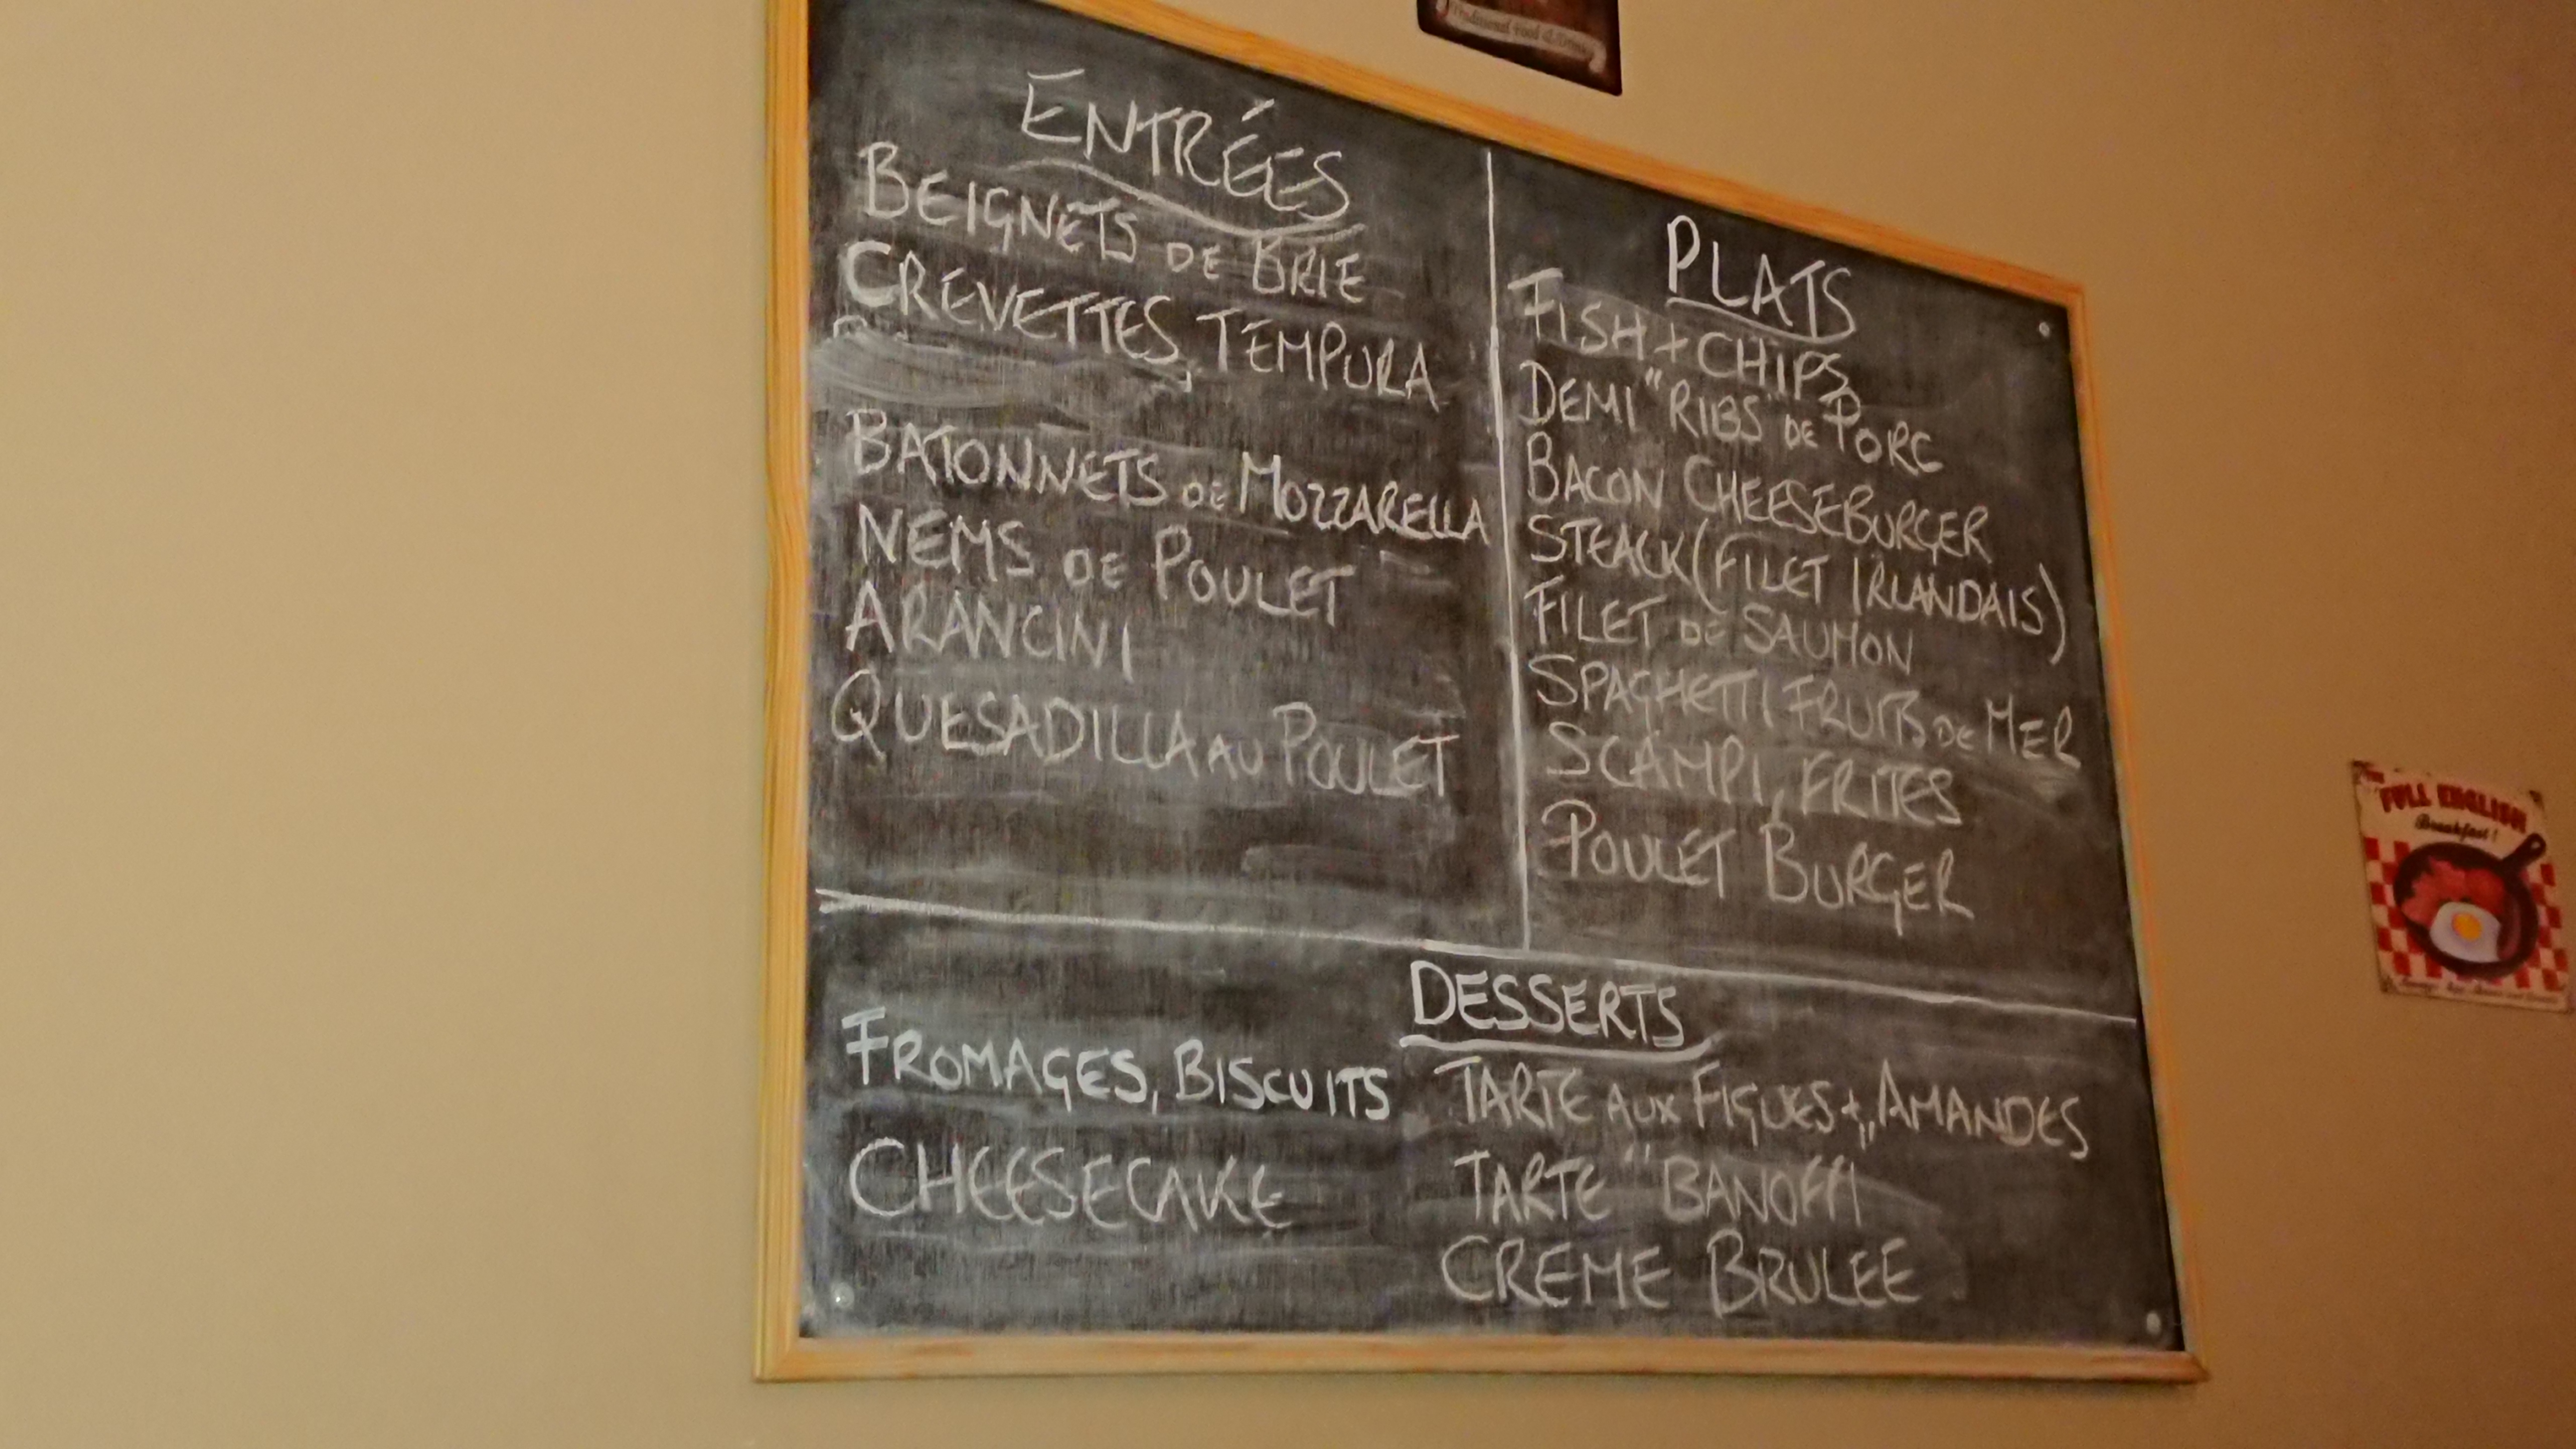 Traditional Food & Drink
ENTRÉES
BEIGNETS DE BRIE
CREVETTES, TEMPURA
BATONNETS DE MOZZARELLA
NEMS DE POULET
ARANCINI
QUESADILLA AU POULET
PLATS
FISH + CHIPS
DEMI "RIBS" DE PORC
BACON CHEESEBURGER
STEACK (FILET IRLANDAIS)
FILET DE SAUMON
SPAGHETTI FRUITS DE MER
SCAMPI, FRITES
POULET BURGER
DESSERTS
FROMAGES, BISCUITS
CHEESECAKE
TARTE AUX FIGUES + AMANDES
TARTE "BANOFFI"
CREME BRULEE
FULL ENGLISH
Breakfast!